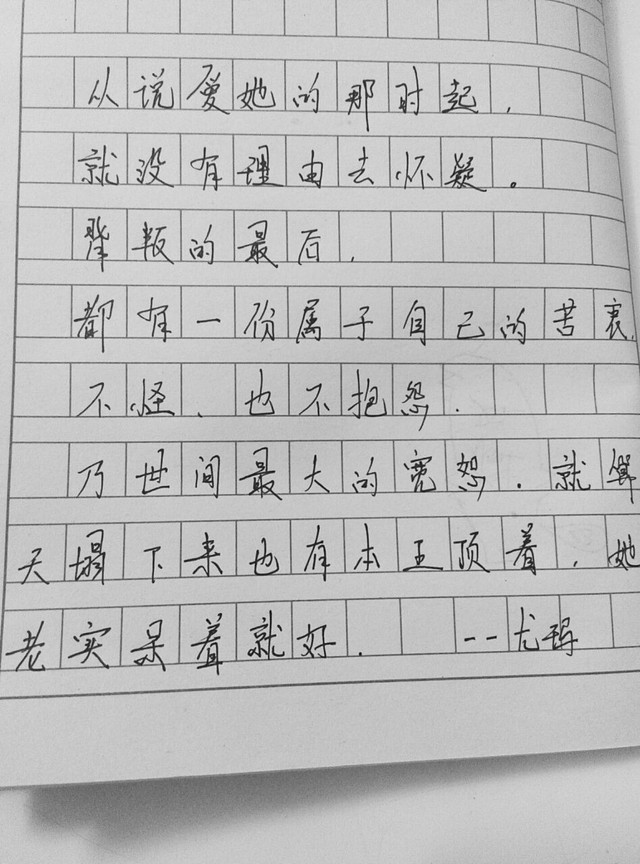 从说爱她的那时起，
就没有理由去怀疑。
背叛的最后，
都有一份属于自己的苦衷，
不怪、也不抱怨．
乃世间最大的宽恕．就算
天塌下来也有本王顶着，她
老实呆着就好．--尤